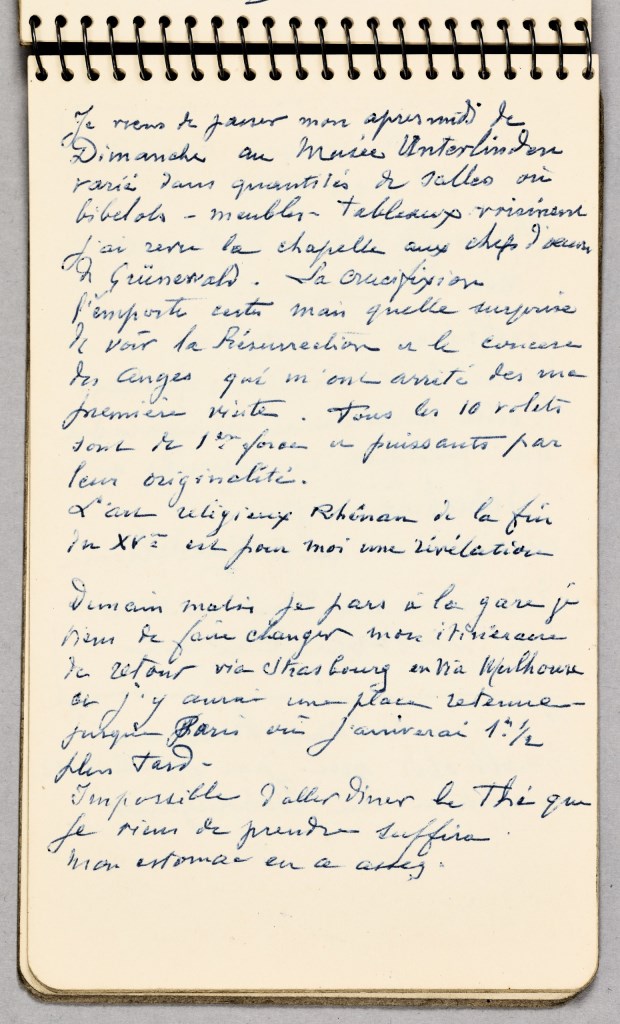 Je viens de passer mon apres midi de
Dimanche au Musée Unterlinden
varié dans quantités de salles où
bibelots - meubles - tableaux voisinent
j'ai revu la chapelle aux chefs d'œuvre
de Grünewald. La crucifixion
l'emporte certes mais quelle surprise
de voir la Résurrection et le concert
des anges qui m'ont arrêté des ma
première visite. Tous les 10 volets
sont de 1ère force et puissants par
leur originalité.
L'art religieux Rhénan de la fin
du XVe est pour moi une révélation
Demain matin je pars à la gare je
viens de faire changer mon itinéraire
de retour via Strasbourg en via Mulhouse
et j'y aurai une place retenue
jusqu'à Paris où j'arriverai 1h 1/2
plus tard -
Impossible d'aller diner le Thé que
je viens de prendre suffira.
Mon estomac en a assez.